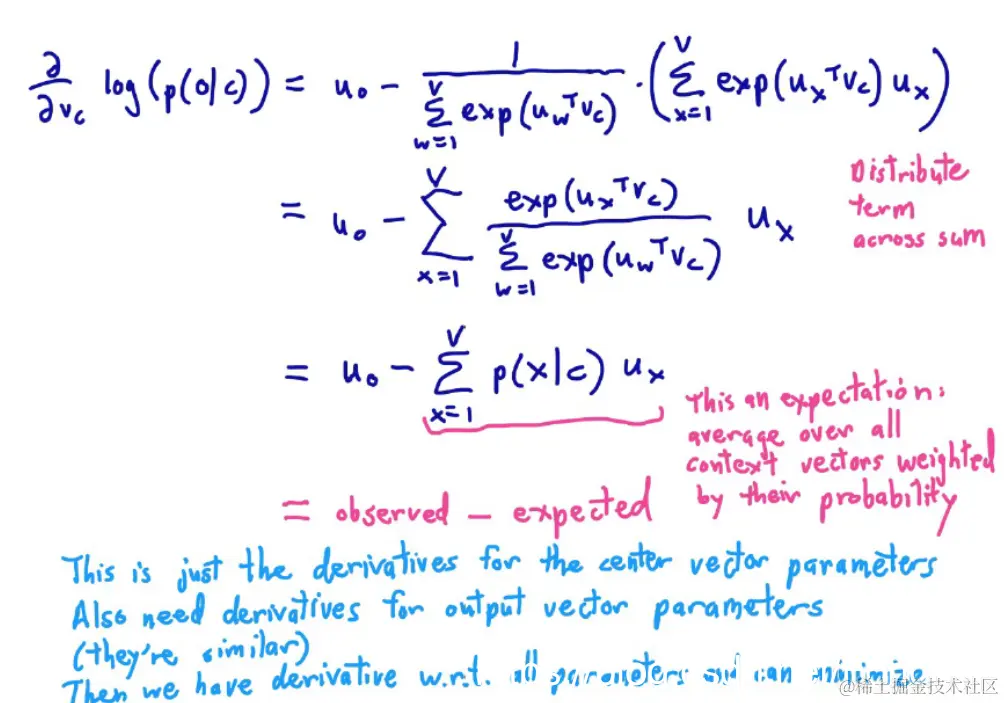 ∂/∂v_c log(p(o|c)) = u_o - 1/(∑_{w=1}^{V} exp(u_w^T v_c)) · (∑_{x=1}^{V} exp(u_x^T v_c) u_x)
= u_o - ∑_{x=1}^{V} exp(u_x^T v_c)/(∑_{w=1}^{V} exp(u_w^T v_c)) u_x
Distribute
term
across sum
= u_o - ∑_{x=1}^{V} p(x|c) u_x
This an expectation:
average over all
context vectors weighted
by their probability
= observed - expected
This is just the derivatives for the center vector parameters
Also need derivatives for output vector parameters
(they're similar)
Then we have derivative w.r.t. all parameters and can minimize
@稀土掘金技术社区